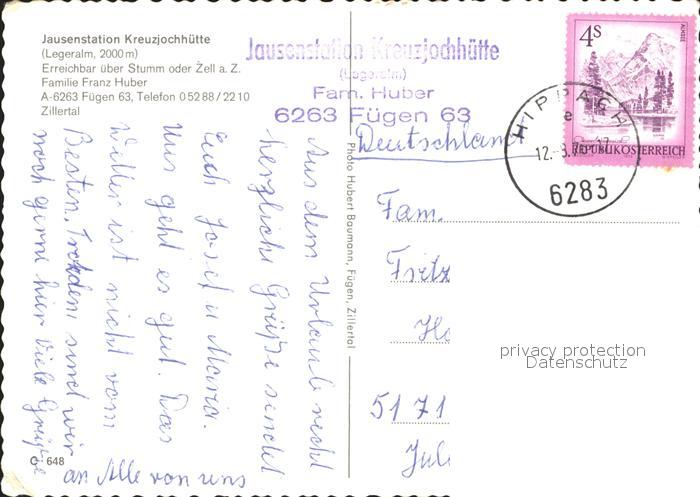 Jausenstation Kreuzjochhütte
(Legeralm, 2000 m)
Erreichbar über Stumm oder Zell a. Z.
Familie Franz Huber
A-6263 Fügen 63, Telefon 0 52 88 / 22 10
Zillertal
Jausenstation Kreuzjochhütte
(Legeralm)
Fam. Huber
6263 Fügen 63
4S
ALMSEE
REPUBLIK ÖSTERREICH
HIPPACH
6283
Aus dem Urlaub recht
herzliche Grüße sendet
Euch Josef u Maria.
Uns geht es gut. Das
Wetter ist nicht vom
Besten. Trotzdem sind wir
noch gerne hier Viele Grüße
an Alle von uns
Photo Hubert Baumann, Fügen, Zillertal
Deutschland
Fam.
Fritz
5171
Jül
privacy protection
Datenschutz
648